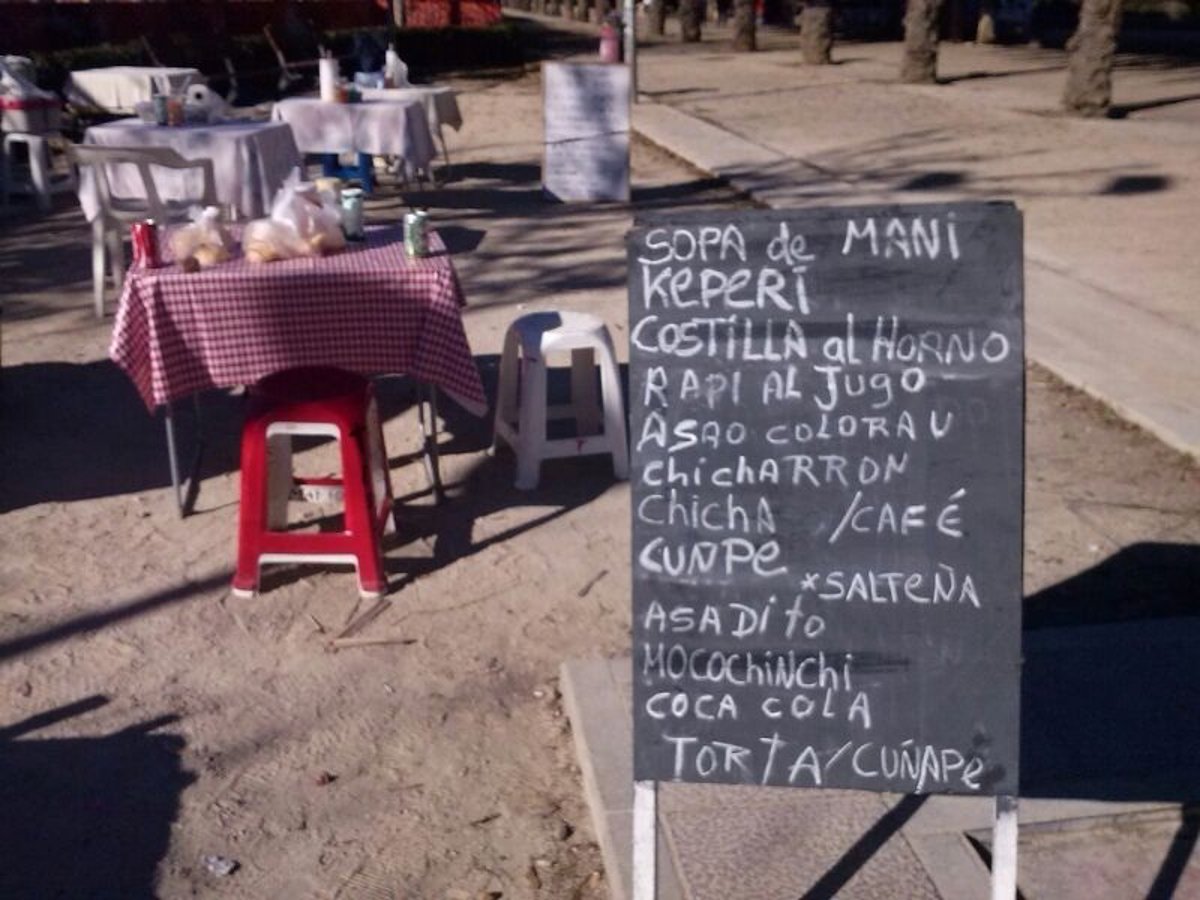 SOPA de MANI
KEPERI
COSTILLA al HORNO
RAPI AL JUGO
ASAO COLORAU
chichARRON
ChichA /CAFÉ
CUNPE
*SALTEÑA
ASADito
MOCOChiNChi
COCA COLA
TORTA/CUÑAPé